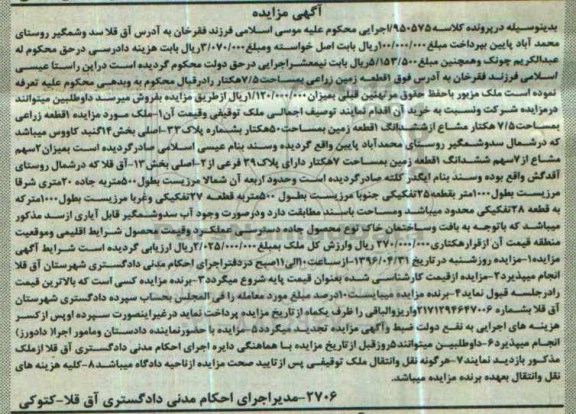 آگهی مزایده
بدینوسیله درپرونده کلاسه ۹۵۰۵۷۵/اجرایی محکوم علیه موسی اسلامی فرزند فقرخان به آدرس آق قلا سد وشمگیر روستای
محمد آباد پایین بپرداخت مبلغ ۱۰۰/۰۰۰/۰۰۰ریال بابت اصل خواسته ومبلغ ۳/۰۷۰/۰۰۰ریال بابت هزینه دادرسی درحق محکوم له
عبدالکریم چونک وهمچنین مبلغ ۵/۱۵۳/۵۰۰ریال بابت نیمعشراجرایی درحق دولت محکوم گردیده است دراین راستا عیسی
اسلامی فرزند فقرخان به آدرس فوق ۱قطعه زمین زراعی بمساحت۷/۵هکتار رادرقبال محکوم به وبدهی محکوم علیه تعرفه
نموده است ملک مزبور باحفظ حقوق مرتهنین قبلی بمیزان ۱/۱۲۰/۰۰۰/۰۰۰ریال ازطریق مزایده بفروش میرسد داوطلبین میتوانند
درمزایده شرکت ونسبت به خرید آن اقدام نمایند توصیف اجمالی ملک توقیفی وقیمت آن۱-ملک مورد مزایده ۱قطعه زراعی
بمساحت ۷/۵ هکتار مشاع ازششدانگ ۱قطعه زمین بمساحت۵۰هکتار بشماره پلاک۳۳-اصلی بخش۱۴گنبد کاووس میباشد
که درشمال سدوشمگیر روستای محمدآباد پایین واقع گردیده وسند بنام عیسی اسلامی صادرگردیده است بمیزان۲سهم
مشاع از۷سهم ششدانگ ۱قطعه زمین بمساحت ۷هکتار دارای پلاک۳۹ فرعی از۲-اصلی بخش۱۳-آق قلا که درشمال روستای
آقدگش واقع بوده وسند بنام ایگدر کلته صادرگردیده است وحدود اربعه آن شمالا مرزیست بطول۵۰۰متربه جاده ۲۰متری شرقا
مرزیست بطول۱۰۰۰متر بقطعه۲۵تفکیکی جنوبا مرزیست بطول ۵۰۰متربه قطعه ۲۷تفکیکی وغربا مرزیست بطول۱۰۰۰مترکه
به قطعه ۲۸تفکیکی محدود میباشد ومساحت باسند مطابقت دارد ودرصورت وجود آب سدوشمگیر قابل آیاری ازسد مذکور
میباشد که باتوجه به بافت وساختمان خاک نوع محصول جاده دسترسی عملکرد وقیمت محصول شرایط اقلیمی وموقعیت
منطقه قیمت آن ازقرارهکتاری۲۷۰/۰۰۰/۰۰۰ ریال وارزش کل ملک بمبلغ۲/۰۲۵/۰۰۰/۰۰۰ریال ارزیابی گردیده است شرایط آگهی
مزایده۱-مزایده روزشنبه در تاریخ ۱۳۹۶/۰۴/۳۱-ازساعت۱۰الی۱۱صبح دردفتراجرای احکام مدنی دادگستری شهرستان آق قلا
انجام میپذیرد۲-مزایده ازقیمت کارشناسی شده بعنوان قیمت پایه شروع میگردد۳-برنده مزایده کسی است که بالاترین قیمت
رادرجلسه قبول نماید۴-برنده مزایده میبایست۱۰درصد مبلغ مورد معامله را فی المجلس بحساب سپرده دادگستری شهرستان
آق قلا بشماره ۲۱۷۱۲۹۴۶۴۷۰۰۶واریزوالباقی را ظرف یکماه ازتاریخ مزایده پرداخت نماید درغیراینصورت سپرده اوپس ازکسر
هزینه های اجرایی به نفع دولت ضبط وآگهی مزایده تجدید میگردد۵-مزایده با حضورنماینده دادستان ومامور اجرا( دادورز)
انجام میپذیرد۶-داوطلبین میتوانند۵روزقبل ازتاریخ مزایده با هماهنگی دایره اجرای احکام مدنی دادگستری آق قلا ازملک
مذکور بازدید نمایند۷-هرگونه نقل وانتقال ملک توقیفی پس ازتایید صحت مزایده ازناحیه دادگاه میباشد۸-کلیه هزینه های
نقل وانتقال بعهده برنده مزایده میباشد.
۲۷۰۶-مدیراجرای احکام مدنی دادگستری آق قلا-کتوکی